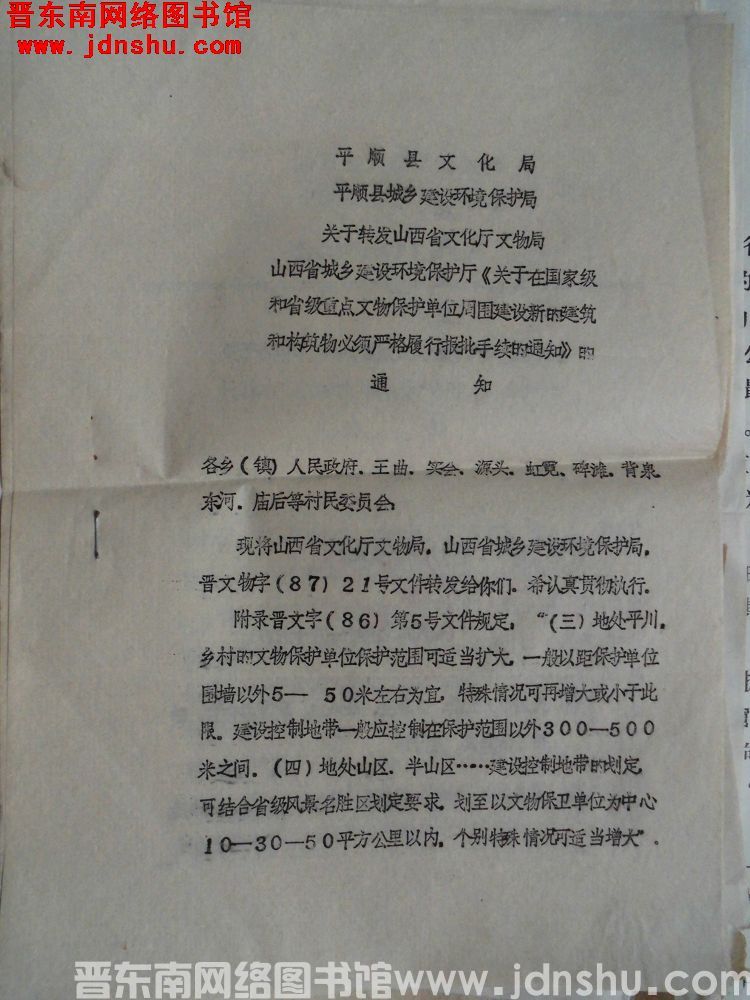 晋东南网络图书馆
www.jdnshu.com
平顺县文化局
平顺县城乡建设环境保护局
关于转发山西省文化厅文物局
山西省城乡建设环境保护厅《关于在国家级
和省级重点文物保护单位周围建设新的建筑
和构筑物必须严格履行报批手续的通知》的
通知
各乡(镇)人民政府、王曲、实会、源头、虹霓、碑滩、背泉
东河、庙后等村民委员会
现将山西省文化厅文物局，山西省城乡建设环境保护局，
晋文物字(87)21号文件转发给你们。希认真贯彻执行。
附录晋文字(86)第5号文件规定，“(三)地处平川，
乡村的文物保护单位保护范围可适当扩大，一般以距保护单位
围墙以外5—50米左右为宜，特殊情况可再增大或小于此
限。建设控制地带一般应控制在保护范围以外300—500
米之间。(四)地处山区、半山区……建设控制地带的划定
可结合省级风景名胜区划定要求，划至以文物保卫单位为中心
10—30—50平方公里以内，个别特殊情况可适当增大”。
晋东南网络图书馆www.jdnshu.com